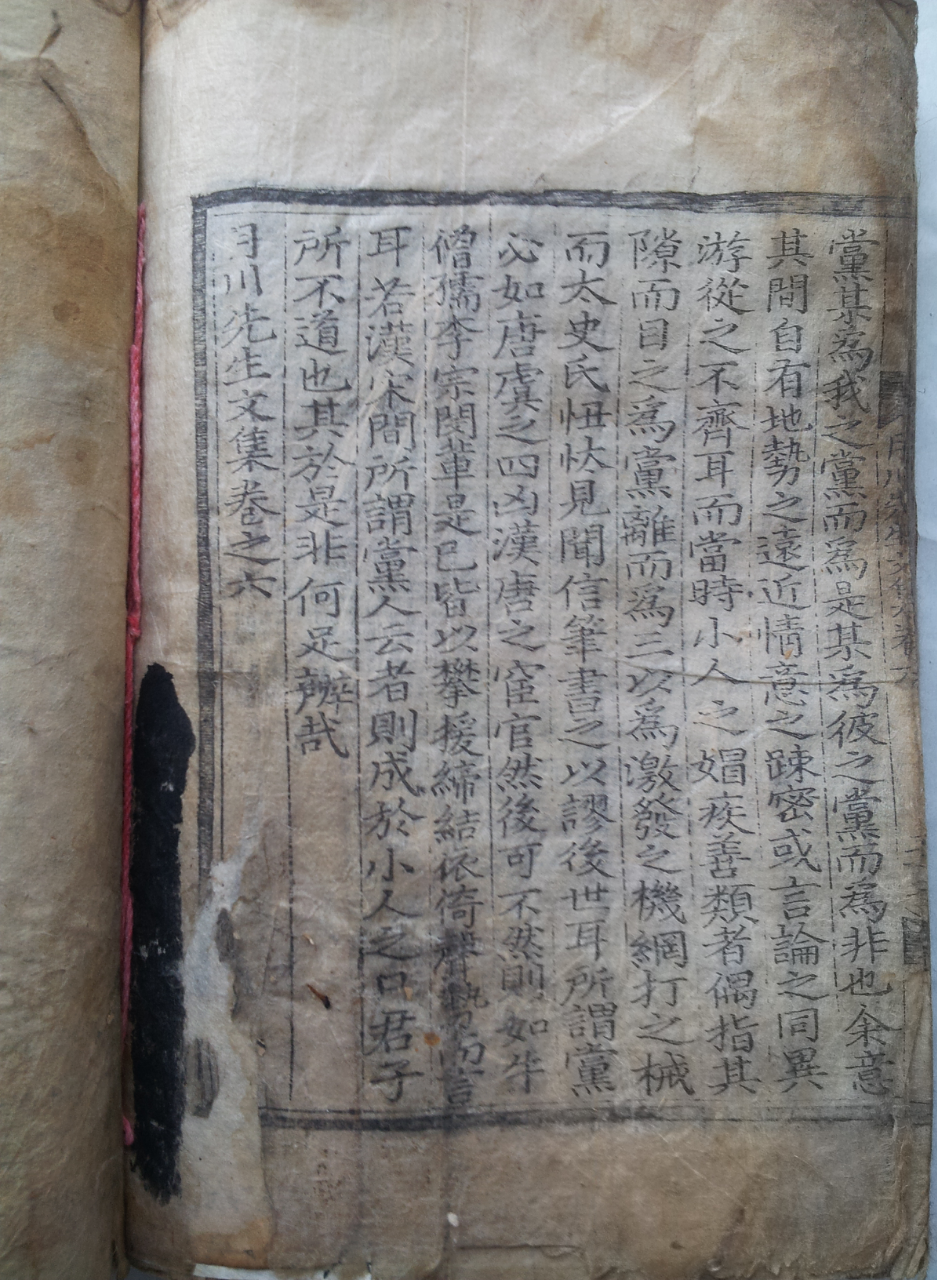 月川先生文集卷六
黨某為我之黨而為是某為彼之黨而為非也余意
其間自有地勢之遠近情意之踈密或言論之同異
游從之不齊耳而當時小人之媢疾善類者偶指其
隙而目之爲黨離而爲三以爲激發之機網打之械
而太史氏忸怢見聞信筆書之以謬後世耳所謂黨
必如唐虞之四凶漢唐之宦官然後可不然則如牛
僧孺李宗閔輩是已皆以攀援締結依倚聲勢而言
耳若漢宋間所謂黨人云者則成於小人之口君子
所不道也其於是非何足辨哉
月川先生文集卷之六